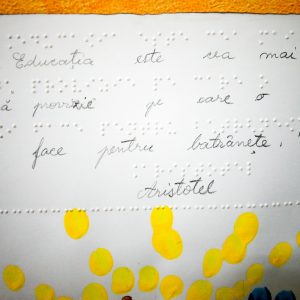 Educația este cea mai
ă provizie pe care o
face pentru batrânețe,
Aristotel